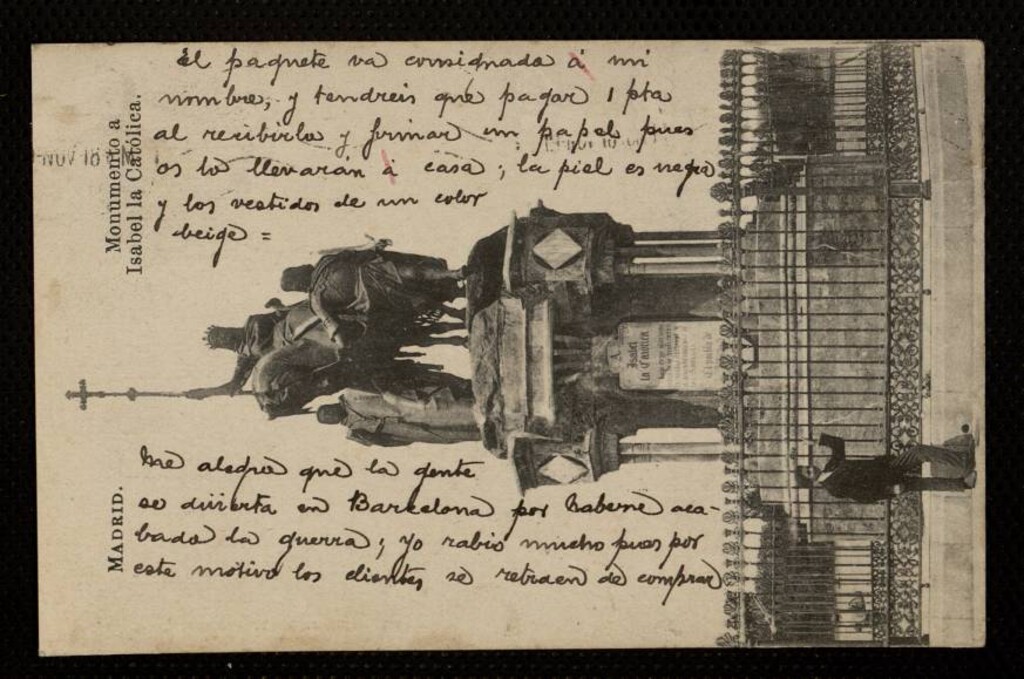 El paquete va consignado á mi
nombre, y tendreis que pagar 1 pta
al recibirlo y firmar un papel pues
os lo llevarán á casa; la piel es negra
y los vestidos de un color
beige =
Me alegro que la gente
se divierta en Barcelona por haberse aca-
bado la guerra; yo rabio mucho pues por
este motivo los clientes se retraen de comprar
MADRID.
Monumento a
Isabel la Católica.
NOV 18
A
Isabel
la Católica